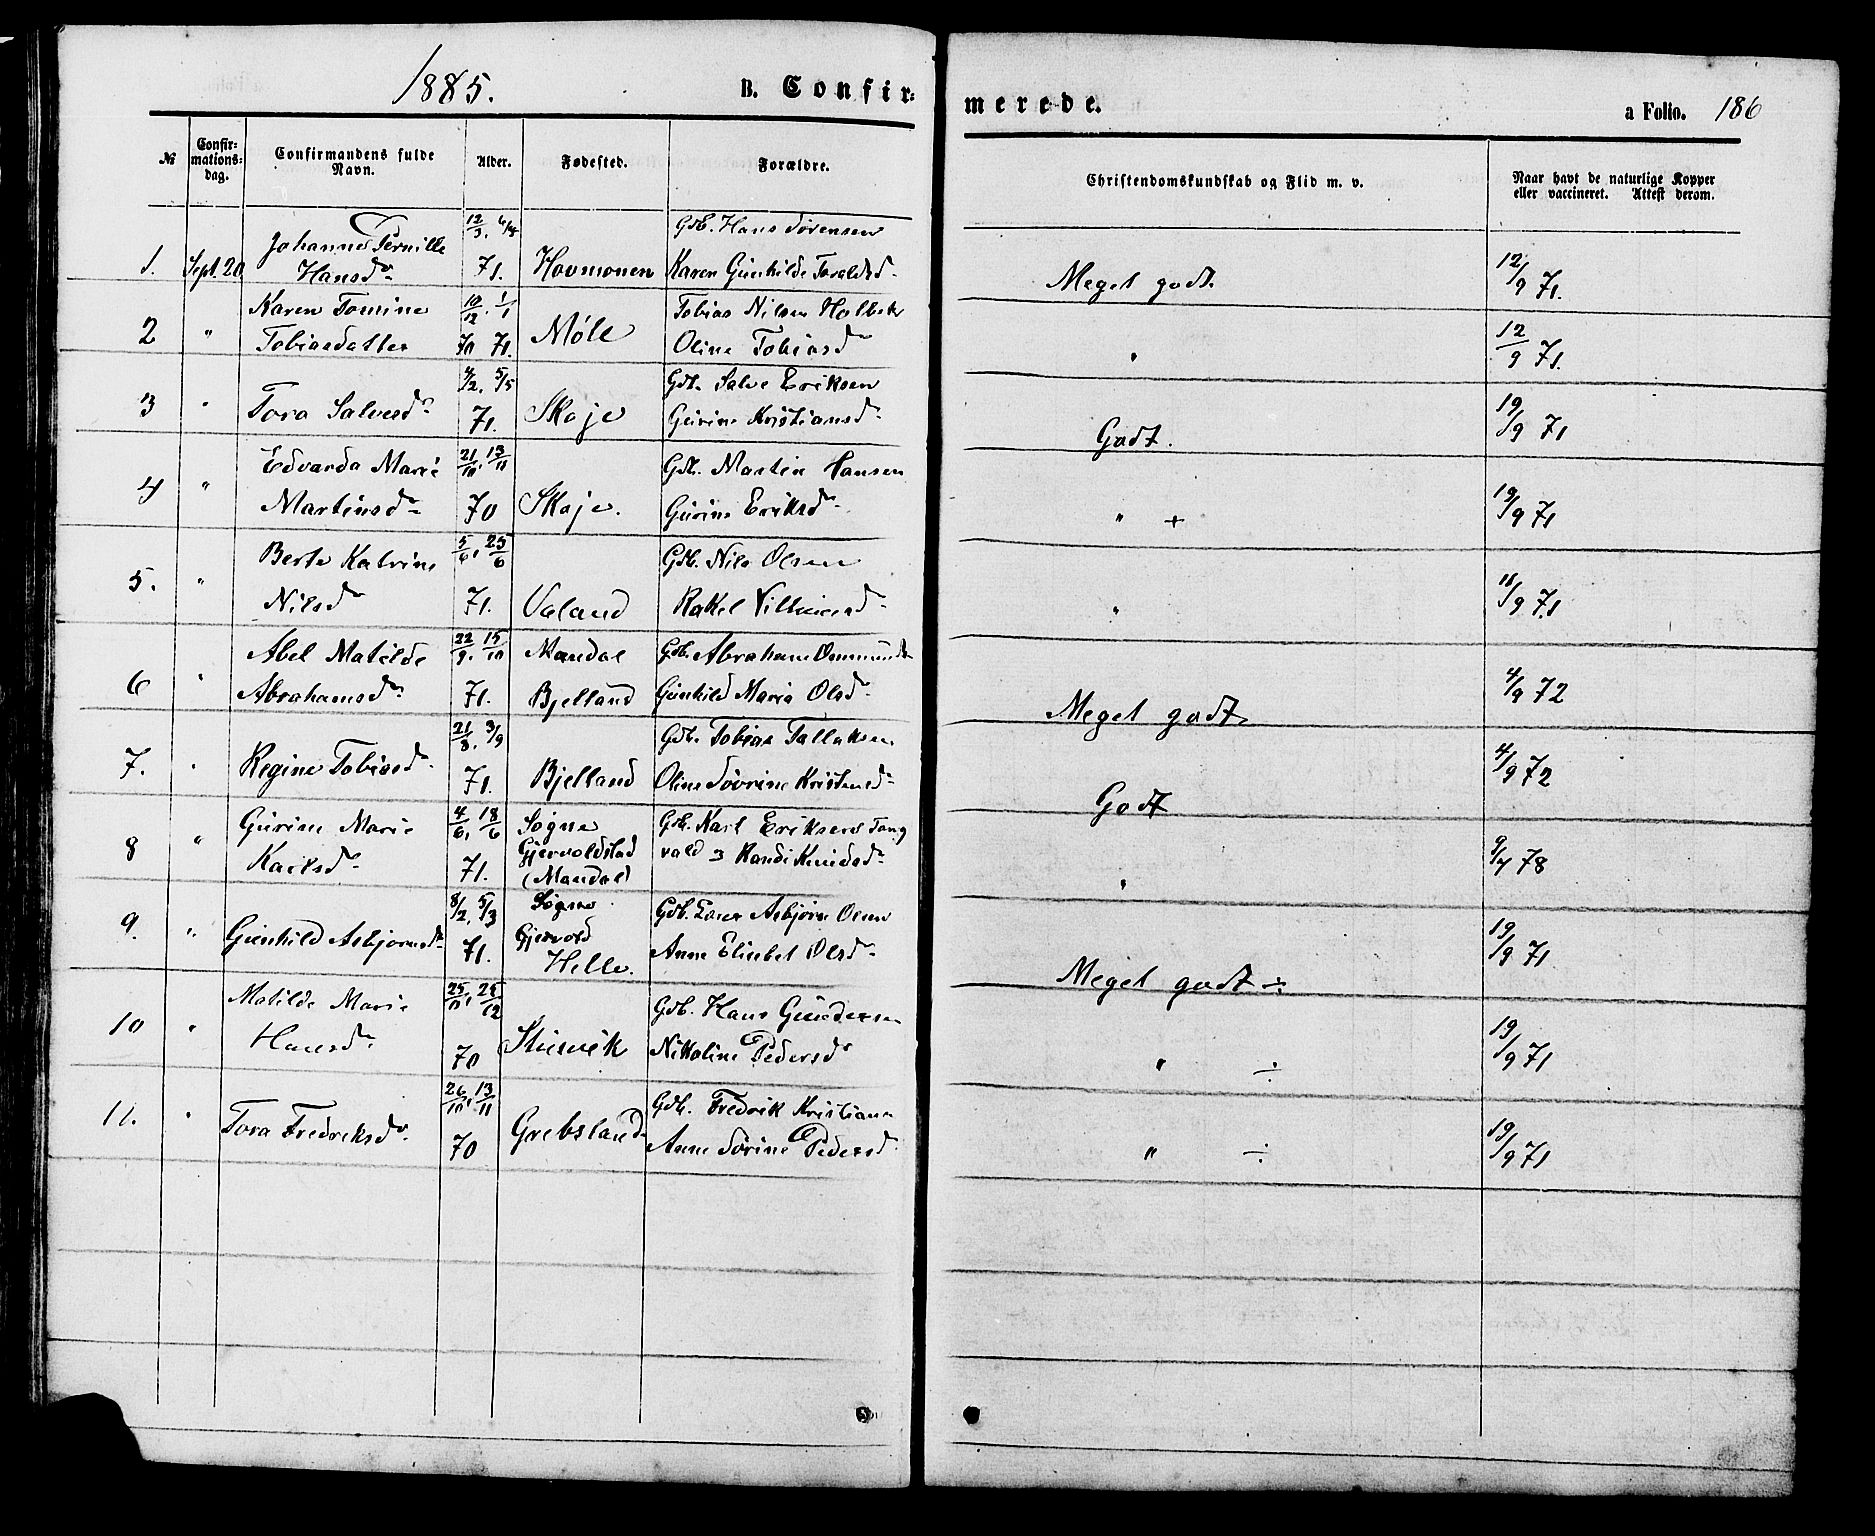 1885.
B. Confir-
merede.
a Folio. 186
№
Confir-
mations-
dag.
Confirmandens fulde
Navn.
Alder.
Fødested.
Forældre.
Christendomskundskab og Flid m. v.
Naar havt de naturlige Kopper
eller vaccineret. Attest derom.
12/3. 6/8 Gdb. Hans Sørensen
Johanne Pernille
1. Sept. 20 Hansdr 71. Hovmonen Karen Gunhilde Toraldsd. Meget godt. 12/9 71.
Karen Tomine 10/12. 1/1 Tobias Nilsen Holbek
2 " Tobiasdatter 70 71. Møll Oline Tobiasd " 12/9 71.
4/2. 5/5 Gdb. Salve Eriksen
3 " Tora Salvesd. 71. Skoje Gurine Kristiansd. Godt. 19/9 71
Edvarda Marie 21/10. 13/11 Gdb. Martin Hansen
4 " Martinsd. 70 Skoje. Gurine Eriksd. " + 19/9 71
Berte Katrine 5/6. 25/6 Gdb. Nils Olsen
5. " Nilsd 71. Valand Rakel " /9 71
Abel Matilde 22/9. 15/10 Mandal Gdb. Abraham
6 " Abrahamsd. 71. Bjelland Gunhild Maria Olsd. Meget godt 4/9 72
21/8. 3/9 Gdb. Tobias Tallaksen
7. " Regine Tobiasd. 71. Bjelland Oline Sovrine Kristensd. Godt 4/9 72
Gurine Marie 4/6. 18/6 Søgne Gdb. Karl Eriksen Tang
8 " Karlsd. 71. Gjervoldstad vald & Randi Knudsd. " 9/4 78
(Mandal)
8/2. 5/3 Søgne Gdb. Asbjørn Olsen
9. " Gunhild Asbjørnsd. 71. Gjervold Anne Elisabet Olsd. Meget godt ÷ 19/9 71
Helle.
Matilde Marie 25/10. 25/12 Gdb. Hans Gundersen
10 " Hansd. 70 Stusvik Nikoline Pedersd " ÷ 19/9 71
26/10. 13/11 Gdb. Fredrik Kristians
11. " Tora Fredriksd. 70 Grebsland Anne Sørine Pedersd. " ÷ 19/9 71